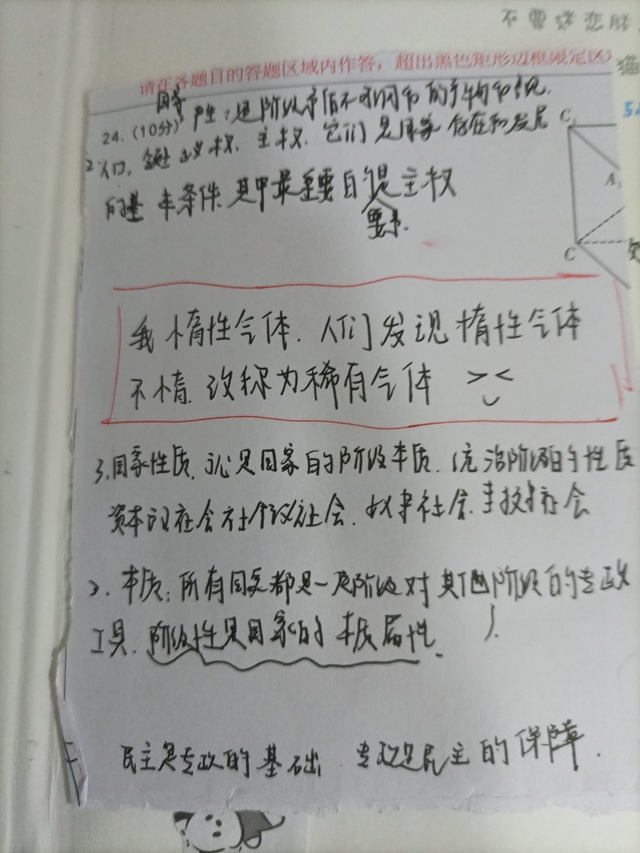 不要迷恋
请在各题目的答题区域内作答，超出黑色矩形边框限定区
猫
24.(10分) 国家产生:是阶级矛盾不可调和的产物和表现.
2人口, 领土 政权. 主权. 它们是国家存在和发展
的基本条件 其中最重要的是主权
要素.
C₁
A₁
C
我 惰性气体. 人们发现惰性气体
不惰. 改称为稀有气体 ><
3.国家性质. 就是国家的阶级本质. 统治阶级的性质
资本主义社会 社会主义社会. 封建社会.
2. 本质: 所有国家都是一定阶级对其他阶级的专政
工具. 阶级性是国家的本质属性.
民主是专政的基础 专政是民主的保障.